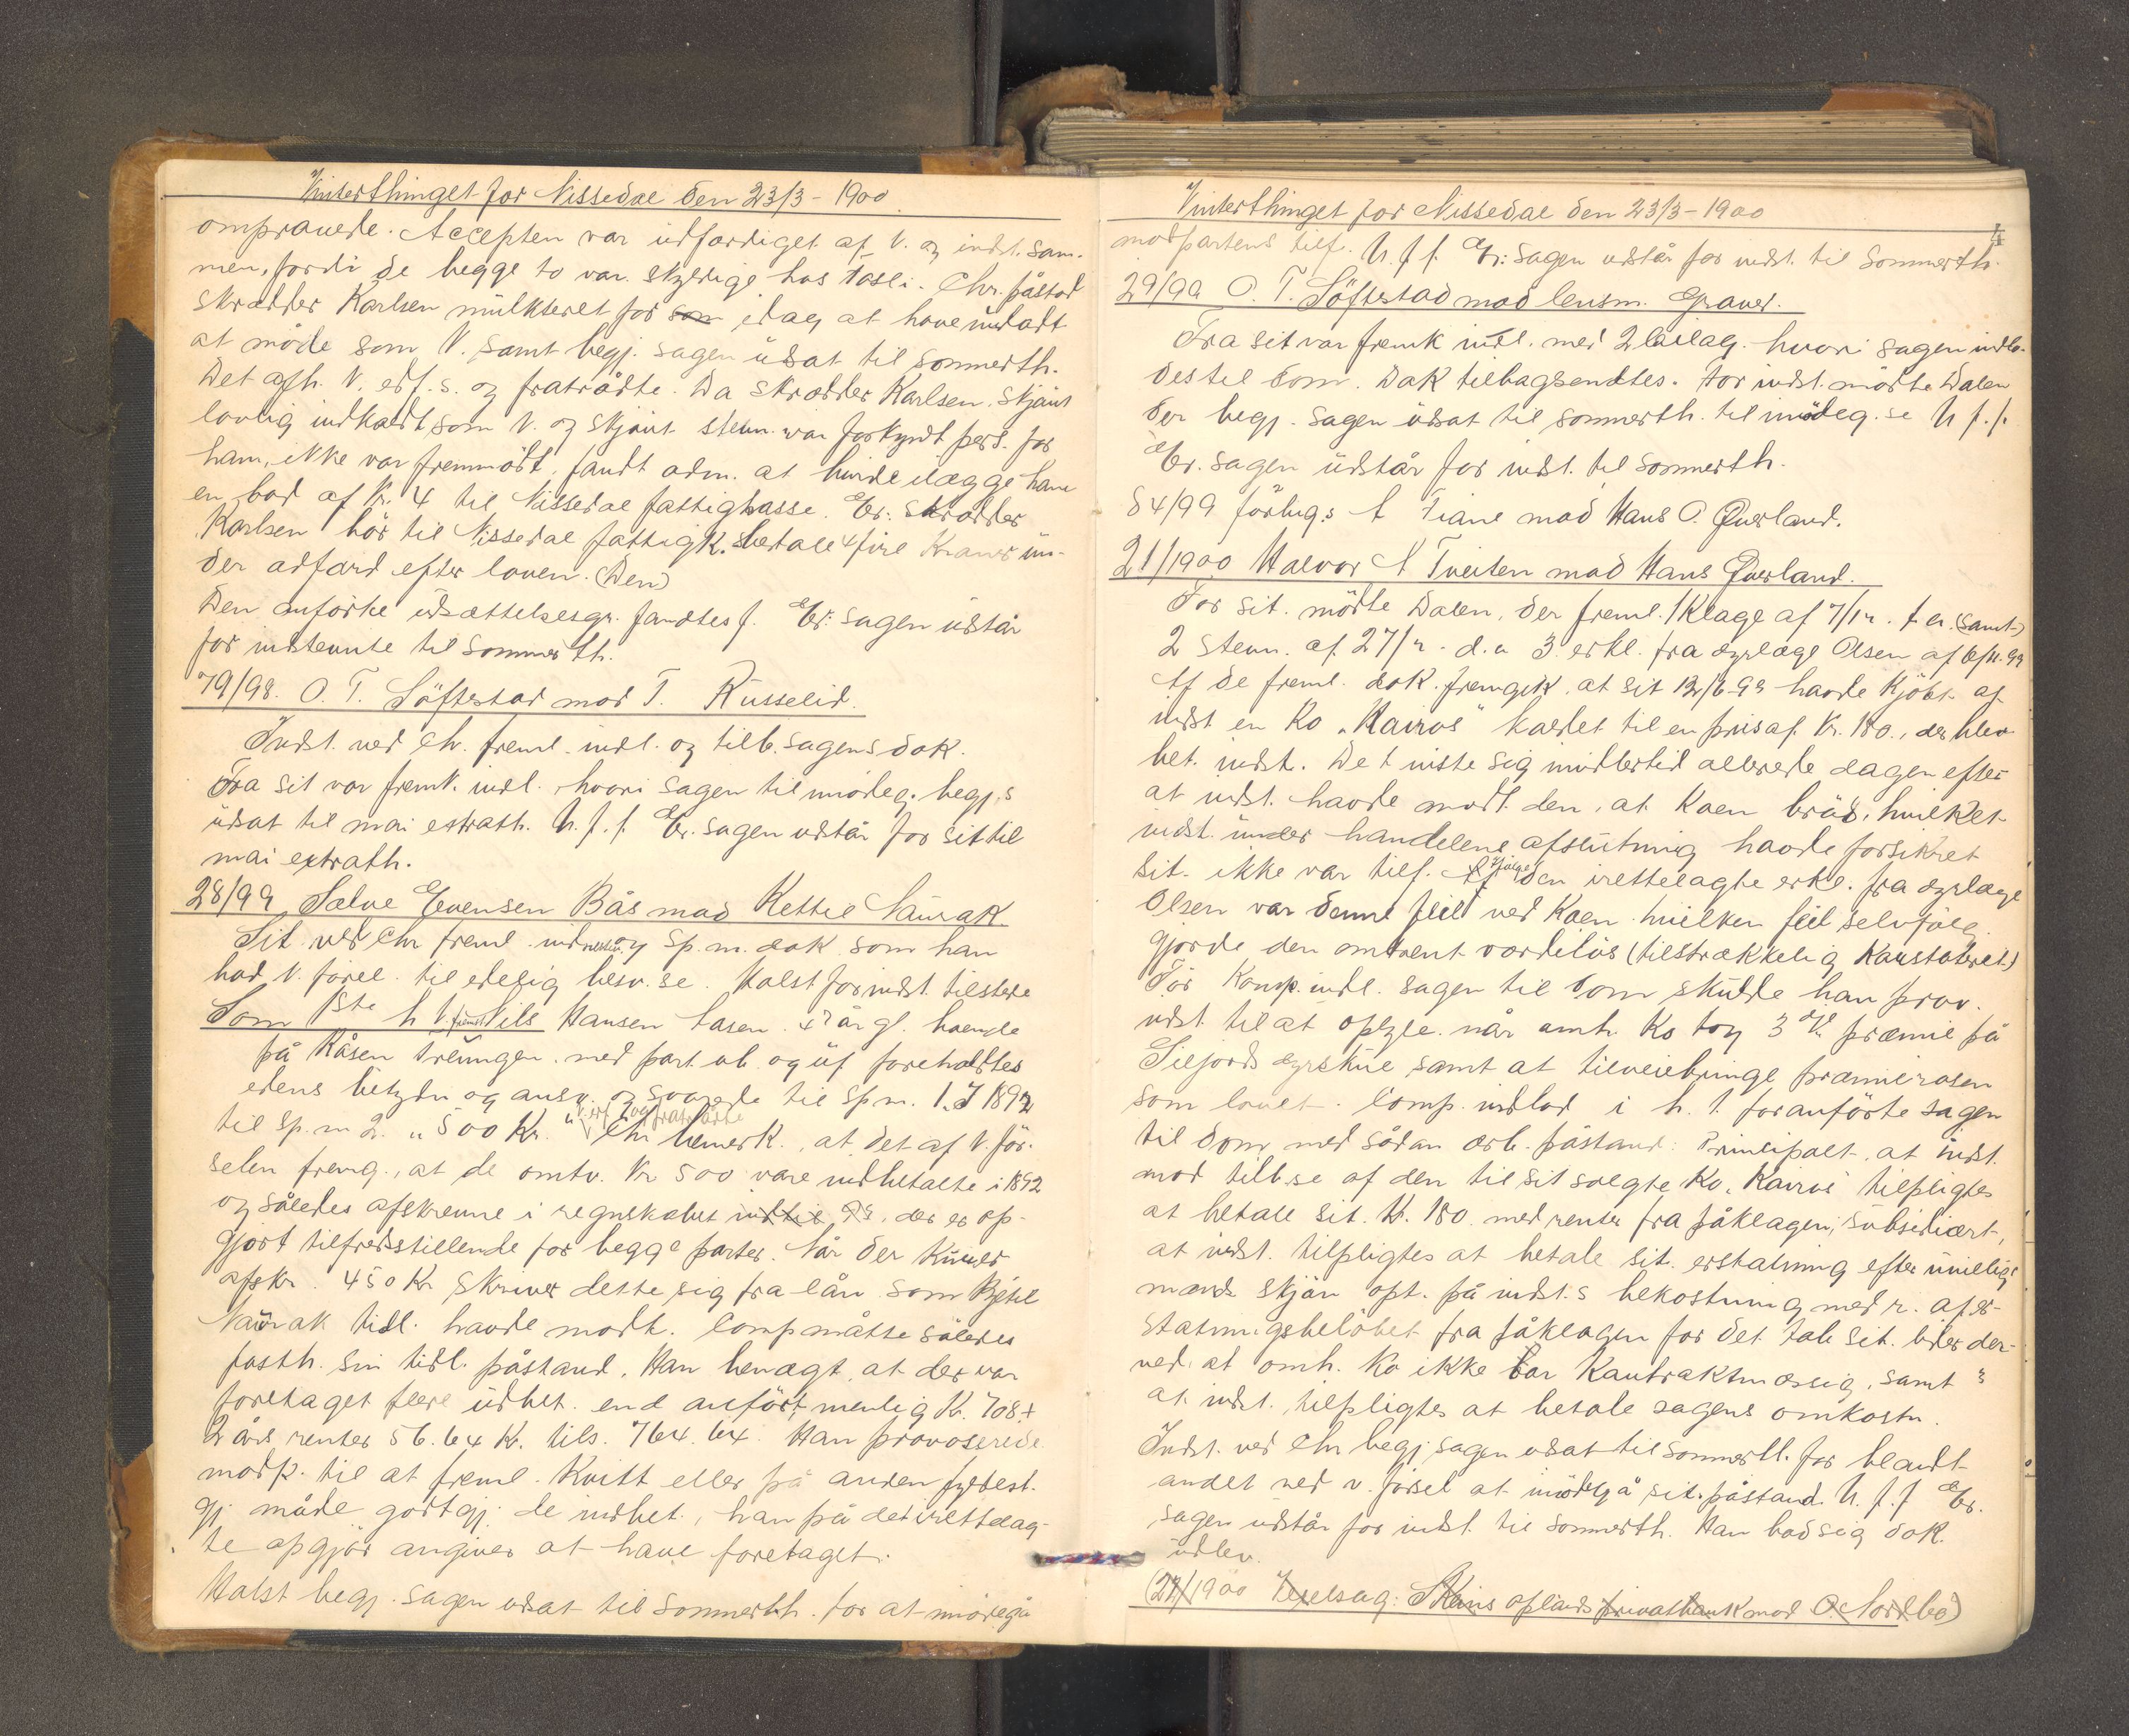 Vinterthinget for Nissedal den 23/3 - 1900
omprøvede. Accepten var udfærdiget af V. og indst. sam-
men, fordi de begge to var skyldige hos Tasli. Chr. påstod
skrædder Karlsen mulkteret for som idag at have undladt
at møde som V. samt begj. sagen udsat til sommerth.
Det afh. V. edf. s. og fratrådte. Da skrædder Karlsen, skjønt
lovlig indkaldt som V. og skjønt stevn. var forkyndt pers. for
ham, ikke var fremmødt, fandt adm. at burde ilægge ham
en bod af Kr. 4 til Nissedal fattigkasse. Er: Skrædder
Karlsen bør til Nissedal fattigk. betale 4 fire Kroner un-
der adfærd efter loven. (Den)
Den anførte udsættelsesgr. fandtes f. Er: Sagen udstår
for indstevnte til Sommerth.
79/98. O. T. Söftestad mod T. Russelid.
Indst. ved Chr. freml. indl. og tilb. sagens dok.
Fra sit var fremk. indl. hvori sagen til imødeg. begj.s
udsat til mai extrath. U. f. f. Er. sagen udstår for sit til
mai extrath.
28/99 Sælve Evensen Bås mod Kettil Naurak.
Sit. ved Chr freml. og sp.m. dok som han
bad V. forel. til edelig besv.se. Halst for indst. tilstede
Som 1ste h V. fremst. Nils Hansen Tasen. 47 år gl. boende
på Råsen Treungen. med part. ub. og uf. foreholdtes
edens betydn og ansv. og svarede til sp m. 1. "I 1892
til sp. m 2. "500 Kr." V. edf. og fratrådte Chr bemerk., at det af V. för-
selen fremg., at de omtv. Kr 500 vare indbetalte i 1892
og således afskrevne i regnskabet indtil 98, der er op-
gjort tilfredsstillende for begge parter. Når der kuns er
afskr. 450 Kr skriver dette sig fra lån som Kjetil
Naurak tidl. havde modt. Comp måtte således
fasth. sin tidl. påstand. Han benægt. at der var
foretaget flere udbet. end anført, nemlig Kr. 708 +
2 års renter 56.64 Kr. tils. 764.64. Han provoserede
modp. til at freml. Kvitt eller på anden fyldest.
gj måde godtgj. de indbet., han på det irettelag-
te opgjør angiver at have foretaget.
Halst begj. sagen udsat til sommerth. for at imødegå
Vinterthinget for Nissedal den 23/3 - 1900
4
modpartens tilf. U. f. f. Er: Sagen udstår for indst. til Sommerth.
29/99 O. T. Söftestad mod lensm. Graver.
Fra sit var fremk indl. med 2 bilag. hvori sagen indlo-
des til Dom. Dok tilbagsendtes. For indst. mødte Dalen
der begj. sagen udsat til sommerth. til imødeg. se U f. f.
Er. Sagen udstår for indst. til sommerth.
84/99 forligs. A Tiane mod Hans O. Qverland.
21/1900 Halvor A Tveiten mod Hans Qverland.
For sit. mødte Dalen, der freml. 1 Klage af 7/12. f. a. (samt)
2 stevn. af 27/2. d. a 3 erkl. fra dyrlæge Olsen af 6/11. 99
Af de freml. dok. fremgik, at sit 12/6-99 havde kjöbt af
indst en Ko "Kairos" kaldet til en pris af Kr. 180., der blev
bet. indst. Det viste sig imidlertid allerede dagen efter
at indst. havde modt. den, at Koen bröd, hvilket
indst. under handelens afslutning havde forsikret
sit. ikke var tilf. Ifølge den irettelagte erkl. fra dyrlæge
Olsen var denne feil ved Koen hvilken feil selvfølg.
gjorde den omtrent værdiløs (tilstrækkelig Konstateret)
För Komp. indl. sagen til Dom skulde han prov.
indst til at oplyse. når omh. Ko tog 3die præmie på
Siljords dyrskue samt at tilveiebringe præmierosen
som lovet. Comp. indlod i h. t. foranførte sagen
til Dom med sådan ærb. påstand: Principalt, at indst.
mod tilb.se af den til sit solgte Ko "Kairos" tilpligtes
at betale sit. Kr. 180. med renter fra påklagen; subsidiært,
at indst. tilpligtes at betale sit. erstatning efter uvillige
mænds skjön opt. på indst.s bekostning med r. af er-
statningsbelöbet fra påklagen for det tab sit. lider der-
ved, at omh. Ko ikke var Kontraktmæssig, samt
at indst. tilpligtes at betale sagens omkostn.
Indst. ved Chr begj. sagen udsat til sommerth. for blandt
andet ved v. försel at imødegå sit. påstand. U. f. f Er.
Sagen udstår for indst. til sommerth. Han bad sig dok.
udlev.
(22/1900 Vexelsag: Skiens oplands privatbank mod O. Nordbö)